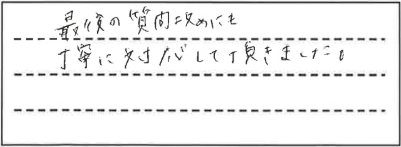 最後の質問攻めにも
丁寧に対応して頂きました。